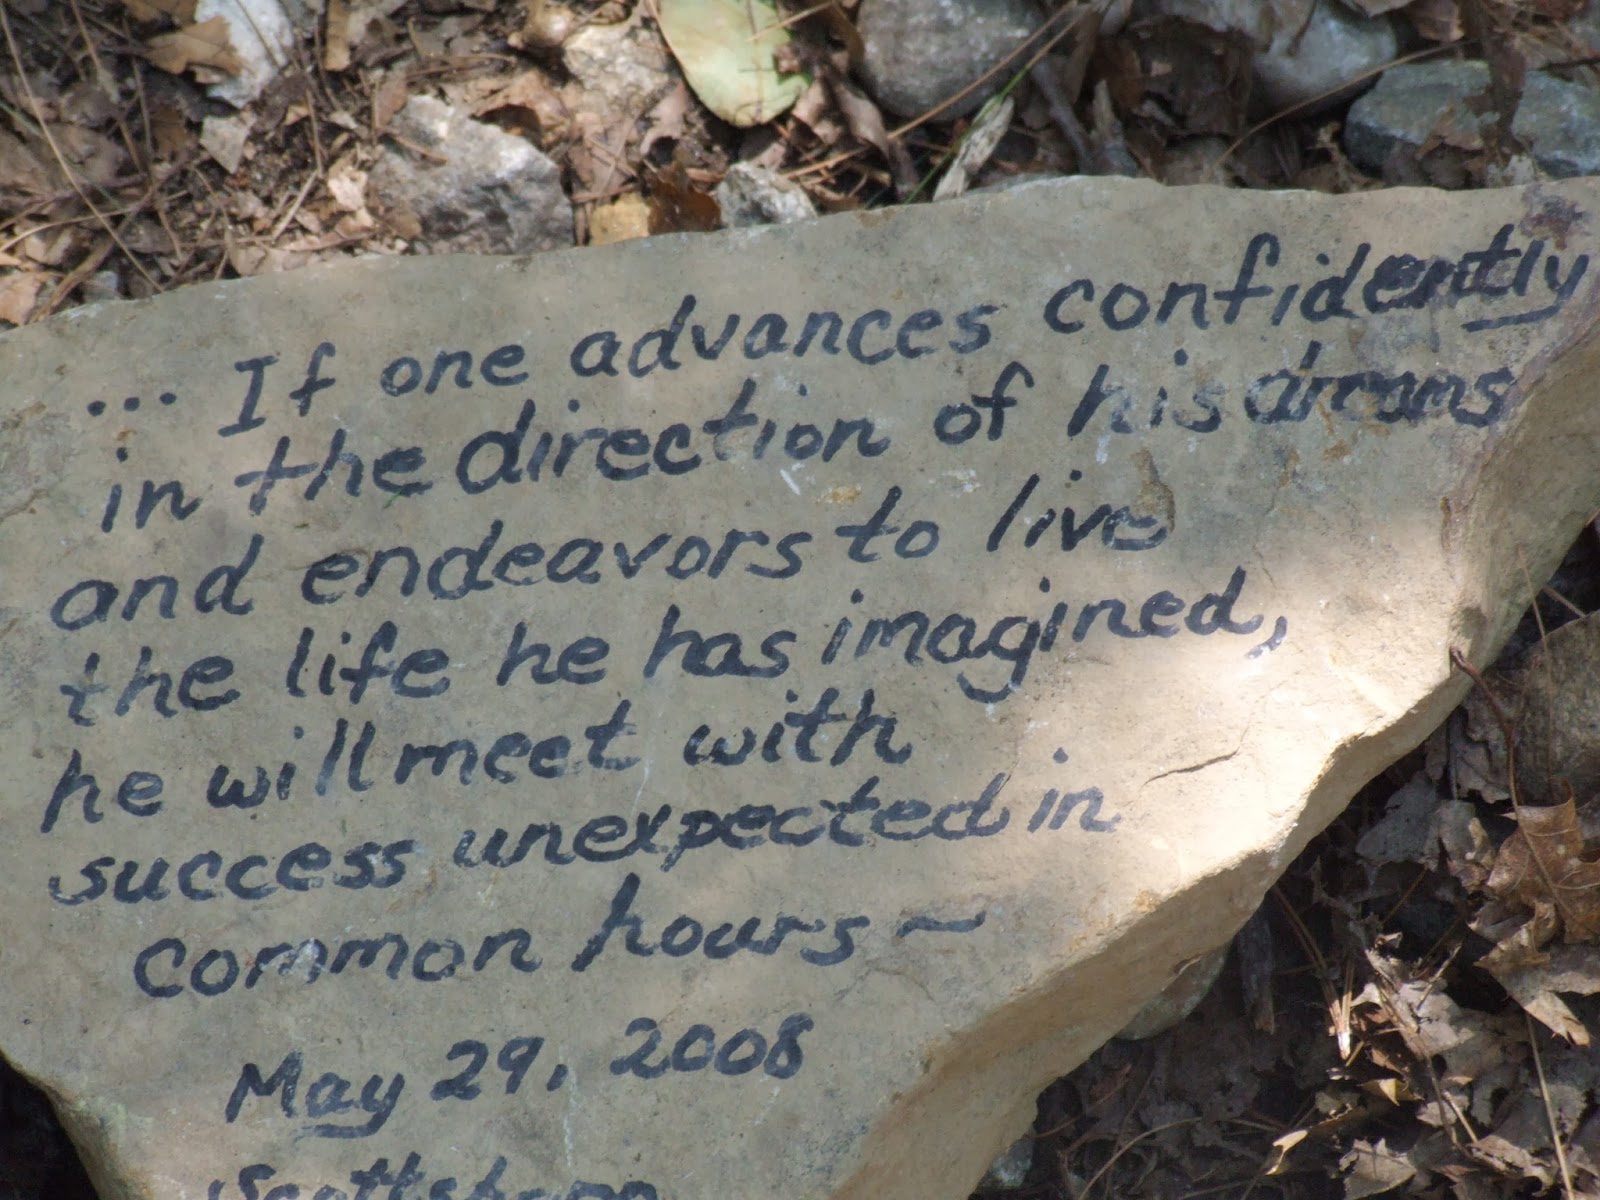 ... If one advances confidently
in the direction of his dreams
and endeavors to live
the life he has imagined,
he will meet with
success unexpected in
common hours ~
May 29, 2008